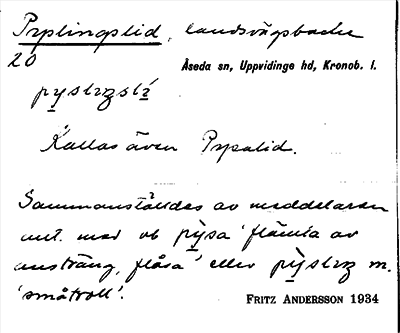 Pyslingslid, landsvägsbacke
20
Åseda sn, Uppvidinge hd, Kronob. l.
Kallas även Pysalid.
Sammanställdes av meddelaren
ant. med vb pysa 'flämta av
ansträng, flåsa' eller m.
'småtroll'.
FRITZ ANDERSSON 1934